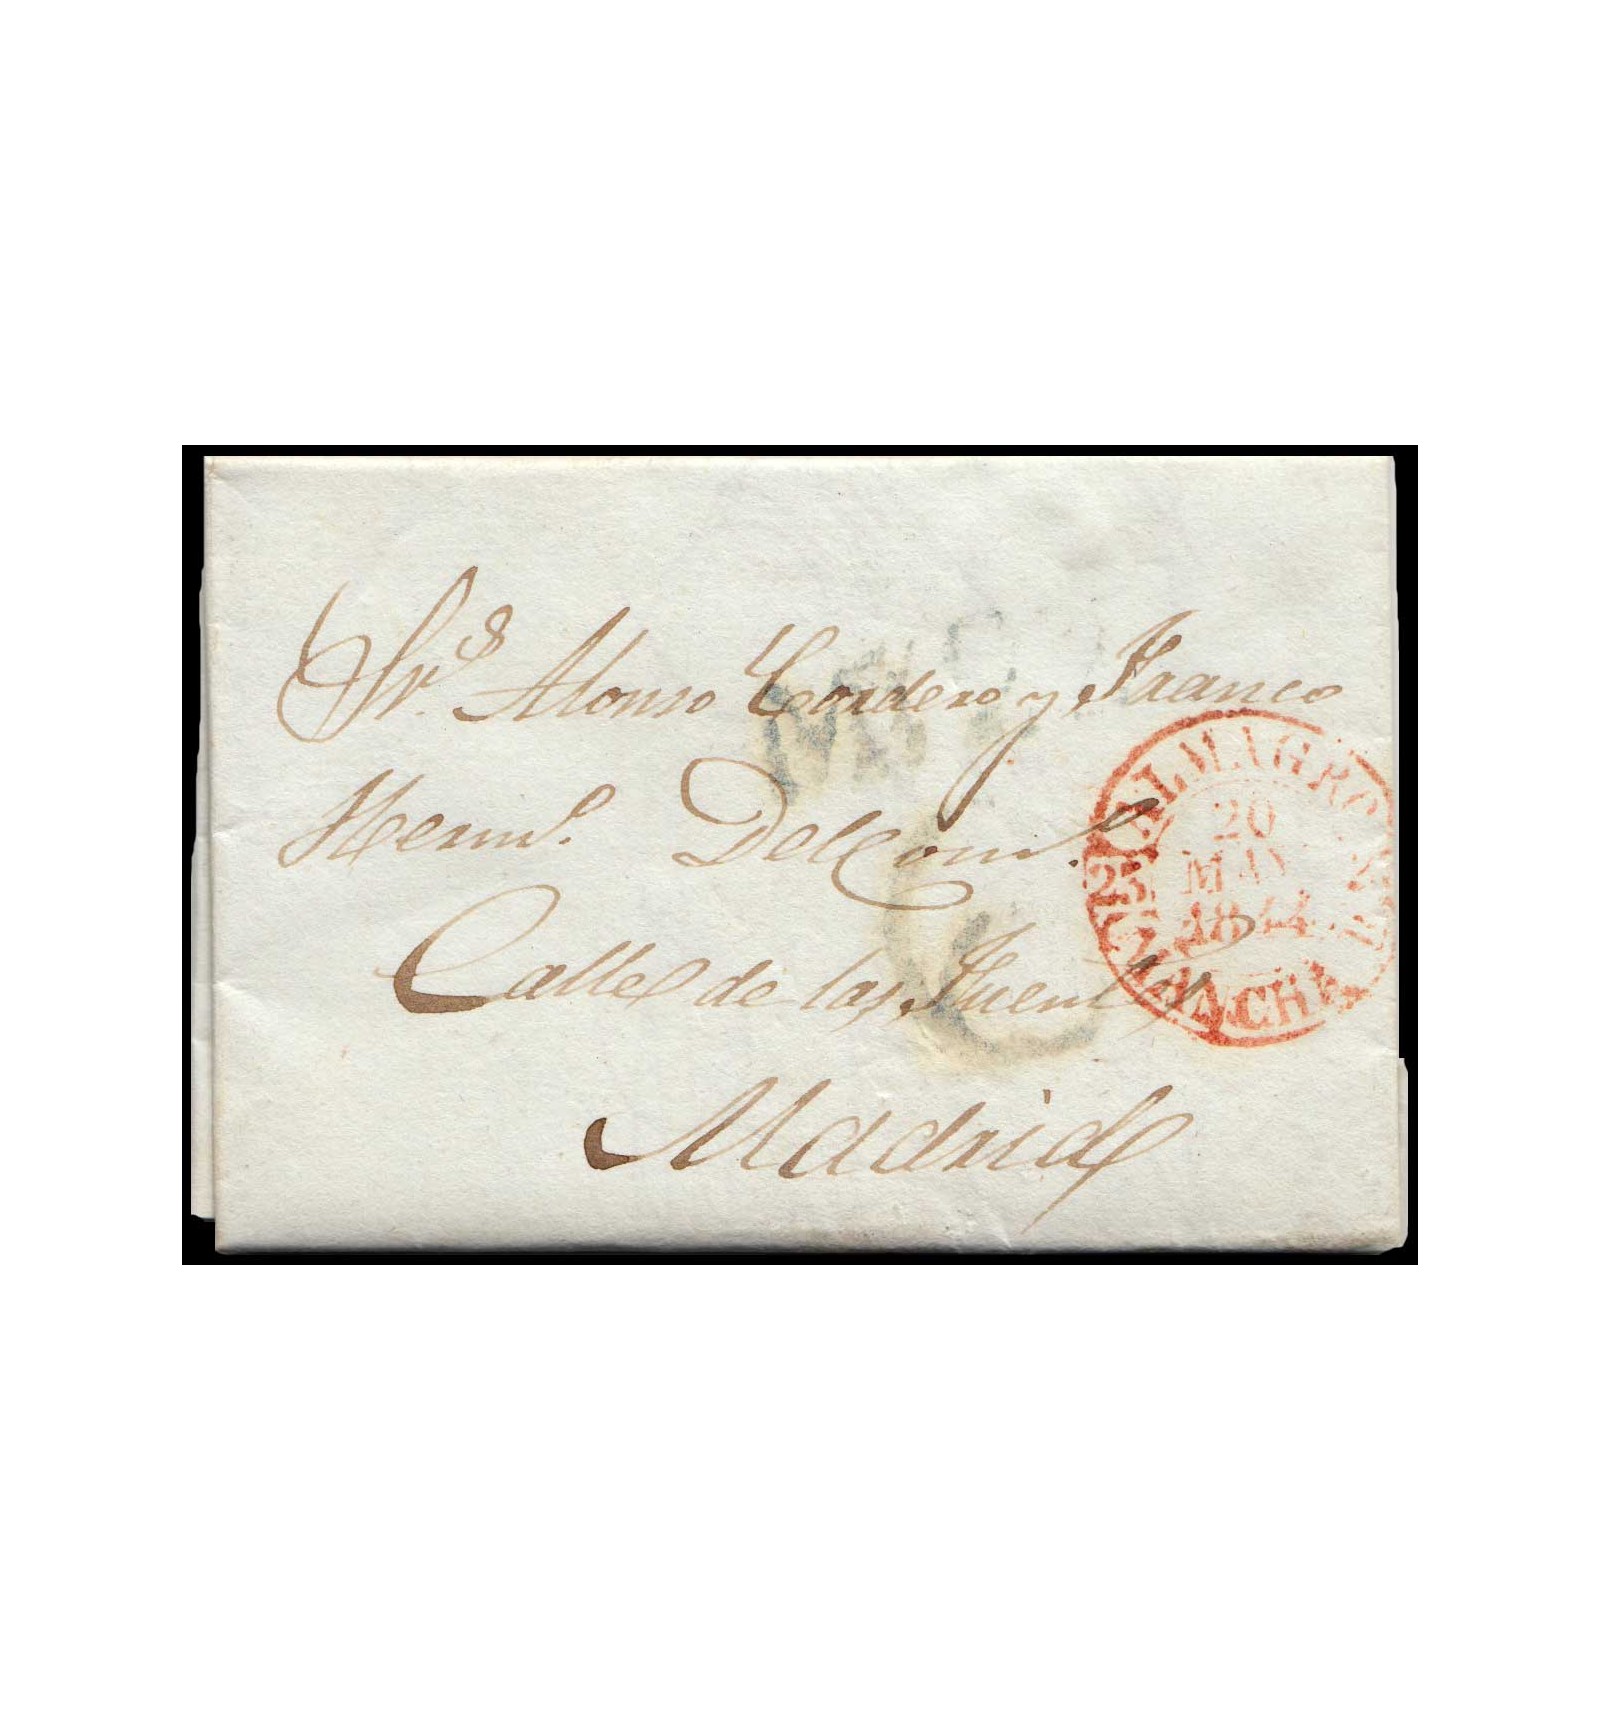 Sr.s Alonso Cordero y Franco
Herm.s Del Com.o
Calle de las Fuentes
Madrid
ALMAGRO
20
MAY
1844
25
MANCHA
6